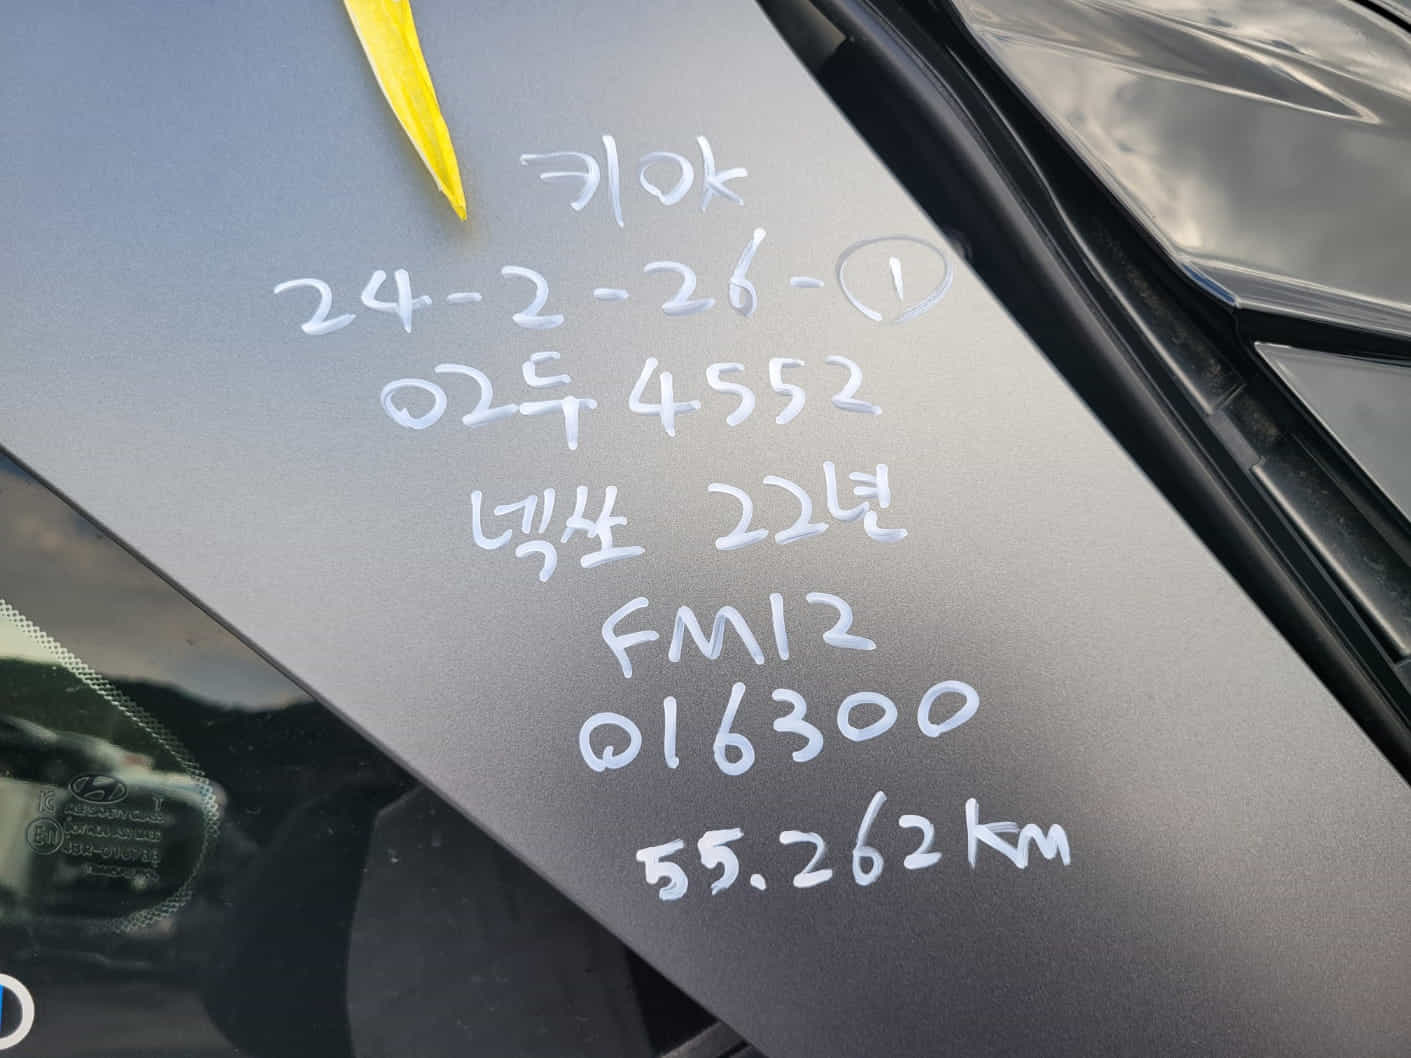 키OK
24-2-26-①
02두4552
넥쏘 22년
FM12
016300
55.262km
43R-016788